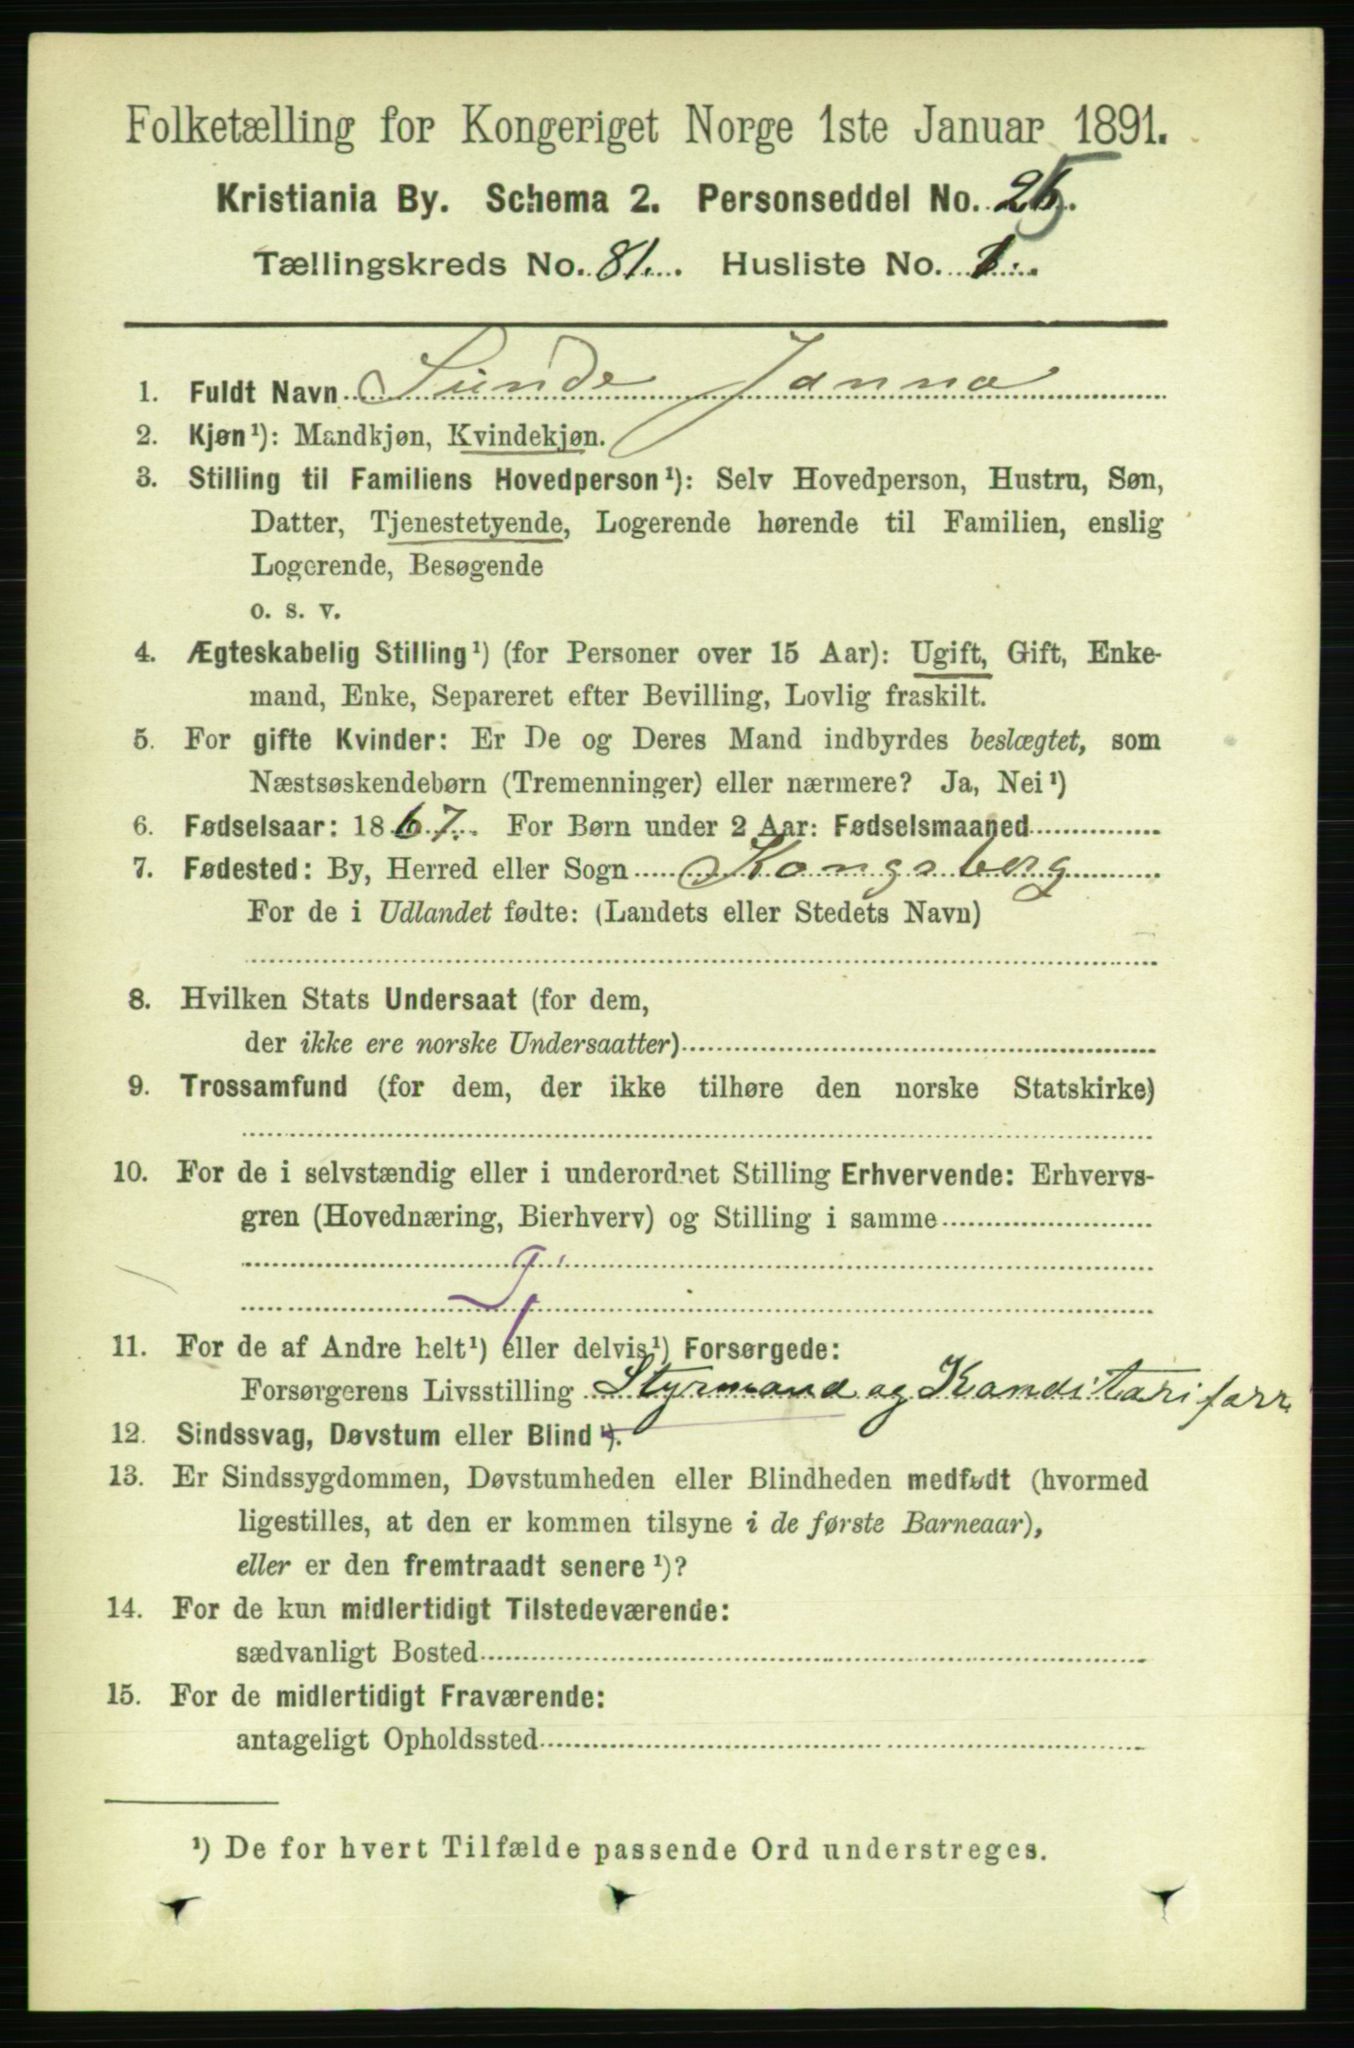 Folketælling for Kongeriget Norge 1ste Januar 1891.
Kristiania By. Schema 2. Personseddel No. 25.
Tællingskreds No. 81. Husliste No. 1.
1. Fuldt Navn Sunde Janna
2. Kjøn¹): Mandkjøn, Kvindekjøn.
3. Stilling til Familiens Hovedperson¹): Selv Hovedperson, Hustru, Søn,
Datter, Tjenestetyende, Logerende hørende til Familien, enslig
Logerende, Besøgende
o. s. v.
4. Ægteskabelig Stilling¹) (for Personer over 15 Aar): Ugift, Gift, Enke-
mand, Enke, Separeret efter Bevilling, Lovlig fraskilt.
5. For gifte Kvinder: Er De og Deres Mand indbyrdes beslægtet, som
Næstsøskendebørn (Tremenninger) eller nærmere? Ja, Nei¹)
6. Fødselsaar: 1867. For Børn under 2 Aar: Fødselsmaaned
7. Fødested: By, Herred eller Sogn Kongsberg
For de i Udlandet fødte: (Landets eller Stedets Navn)
8. Hvilken Stats Undersaat (for dem,
der ikke ere norske Undersaatter)
9. Trossamfund (for dem, der ikke tilhøre den norske Statskirke)
10. For de i selvstændig eller i underordnet Stilling Erhvervende: Erhvervs-
gren (Hovednæring, Bierhverv) og Stilling i samme
11. For de af Andre helt¹) eller delvis¹) Forsørgede:
Forsørgerens Livsstilling Styrmand og
12. Sindssvag, Døvstum eller Blind¹).
13. Er Sindssygdommen, Døvstumheden eller Blindheden medfødt (hvormed
ligestilles, at den er kommen tilsyne i de første Barneaar),
eller er den fremtraadt senere¹)?
14. For de kun midlertidigt Tilstedeværende:
sædvanligt Bosted
15. For de midlertidigt Fraværende:
antageligt Opholdssted
¹) De for hvert Tilfælde passende Ord understreges.